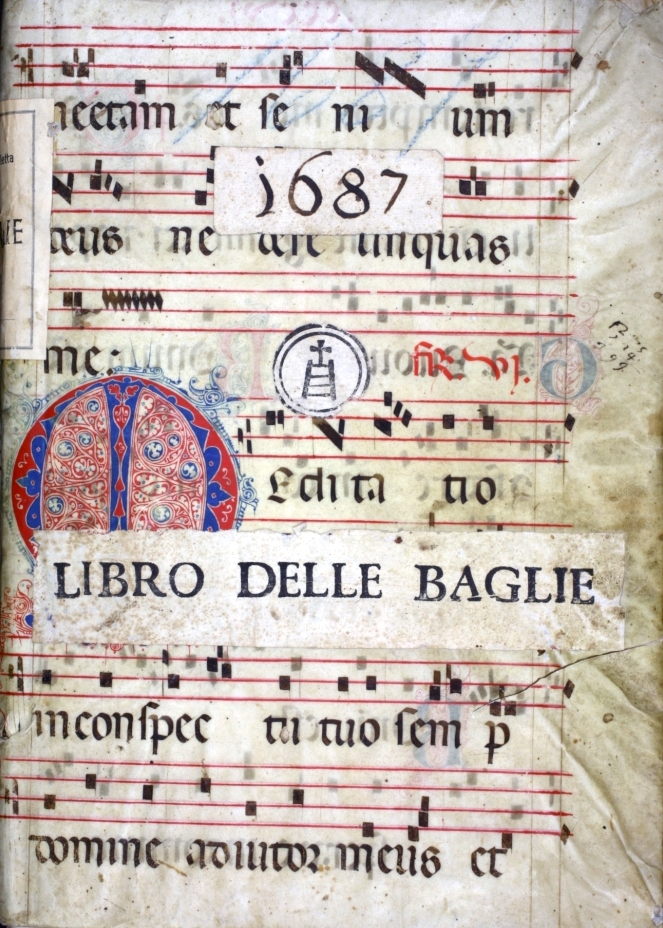 et se ni um
1687
deus ne
quas
me: fir vi.
Edita tio
LIBRO DELLE BAGLIE
in conspec tu tuo sem p̄
domine adiutor meus et